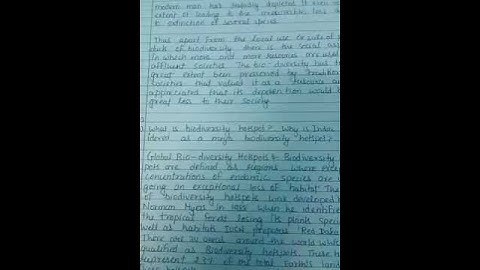 modern man has rapidly depleted it even to
extent of leading to the irrecoverable loss
to extinction of several species.
Thus apart from the local use or sale of
ducts of biodiversity there is the social asp
in which more and more resources are used
affluent societies. The bio-diversity has to
great extent been preserved by traditional
societies that valued it as a resource
appreciated that its depletion would b
great loss to their society.
What is biodiversity hotspot? Why is India
idered as a mega biodiversity hotspot?
Global Bio-diversity Hotspots :- Biodiversity
pots are defined as Regions where
concentrations of endemic species are
going an exceptional loss of habitat. The
of biodiversity hotspots was developed
Norman Myers in 1988 when he identified
the tropical forest losing its plants speci
well as habitats. IUCN prepares 'Red Data
There are 34 areas around the world
qualified as Biodiversity hotspots. These h
represent 2.3% of the total Earth's land